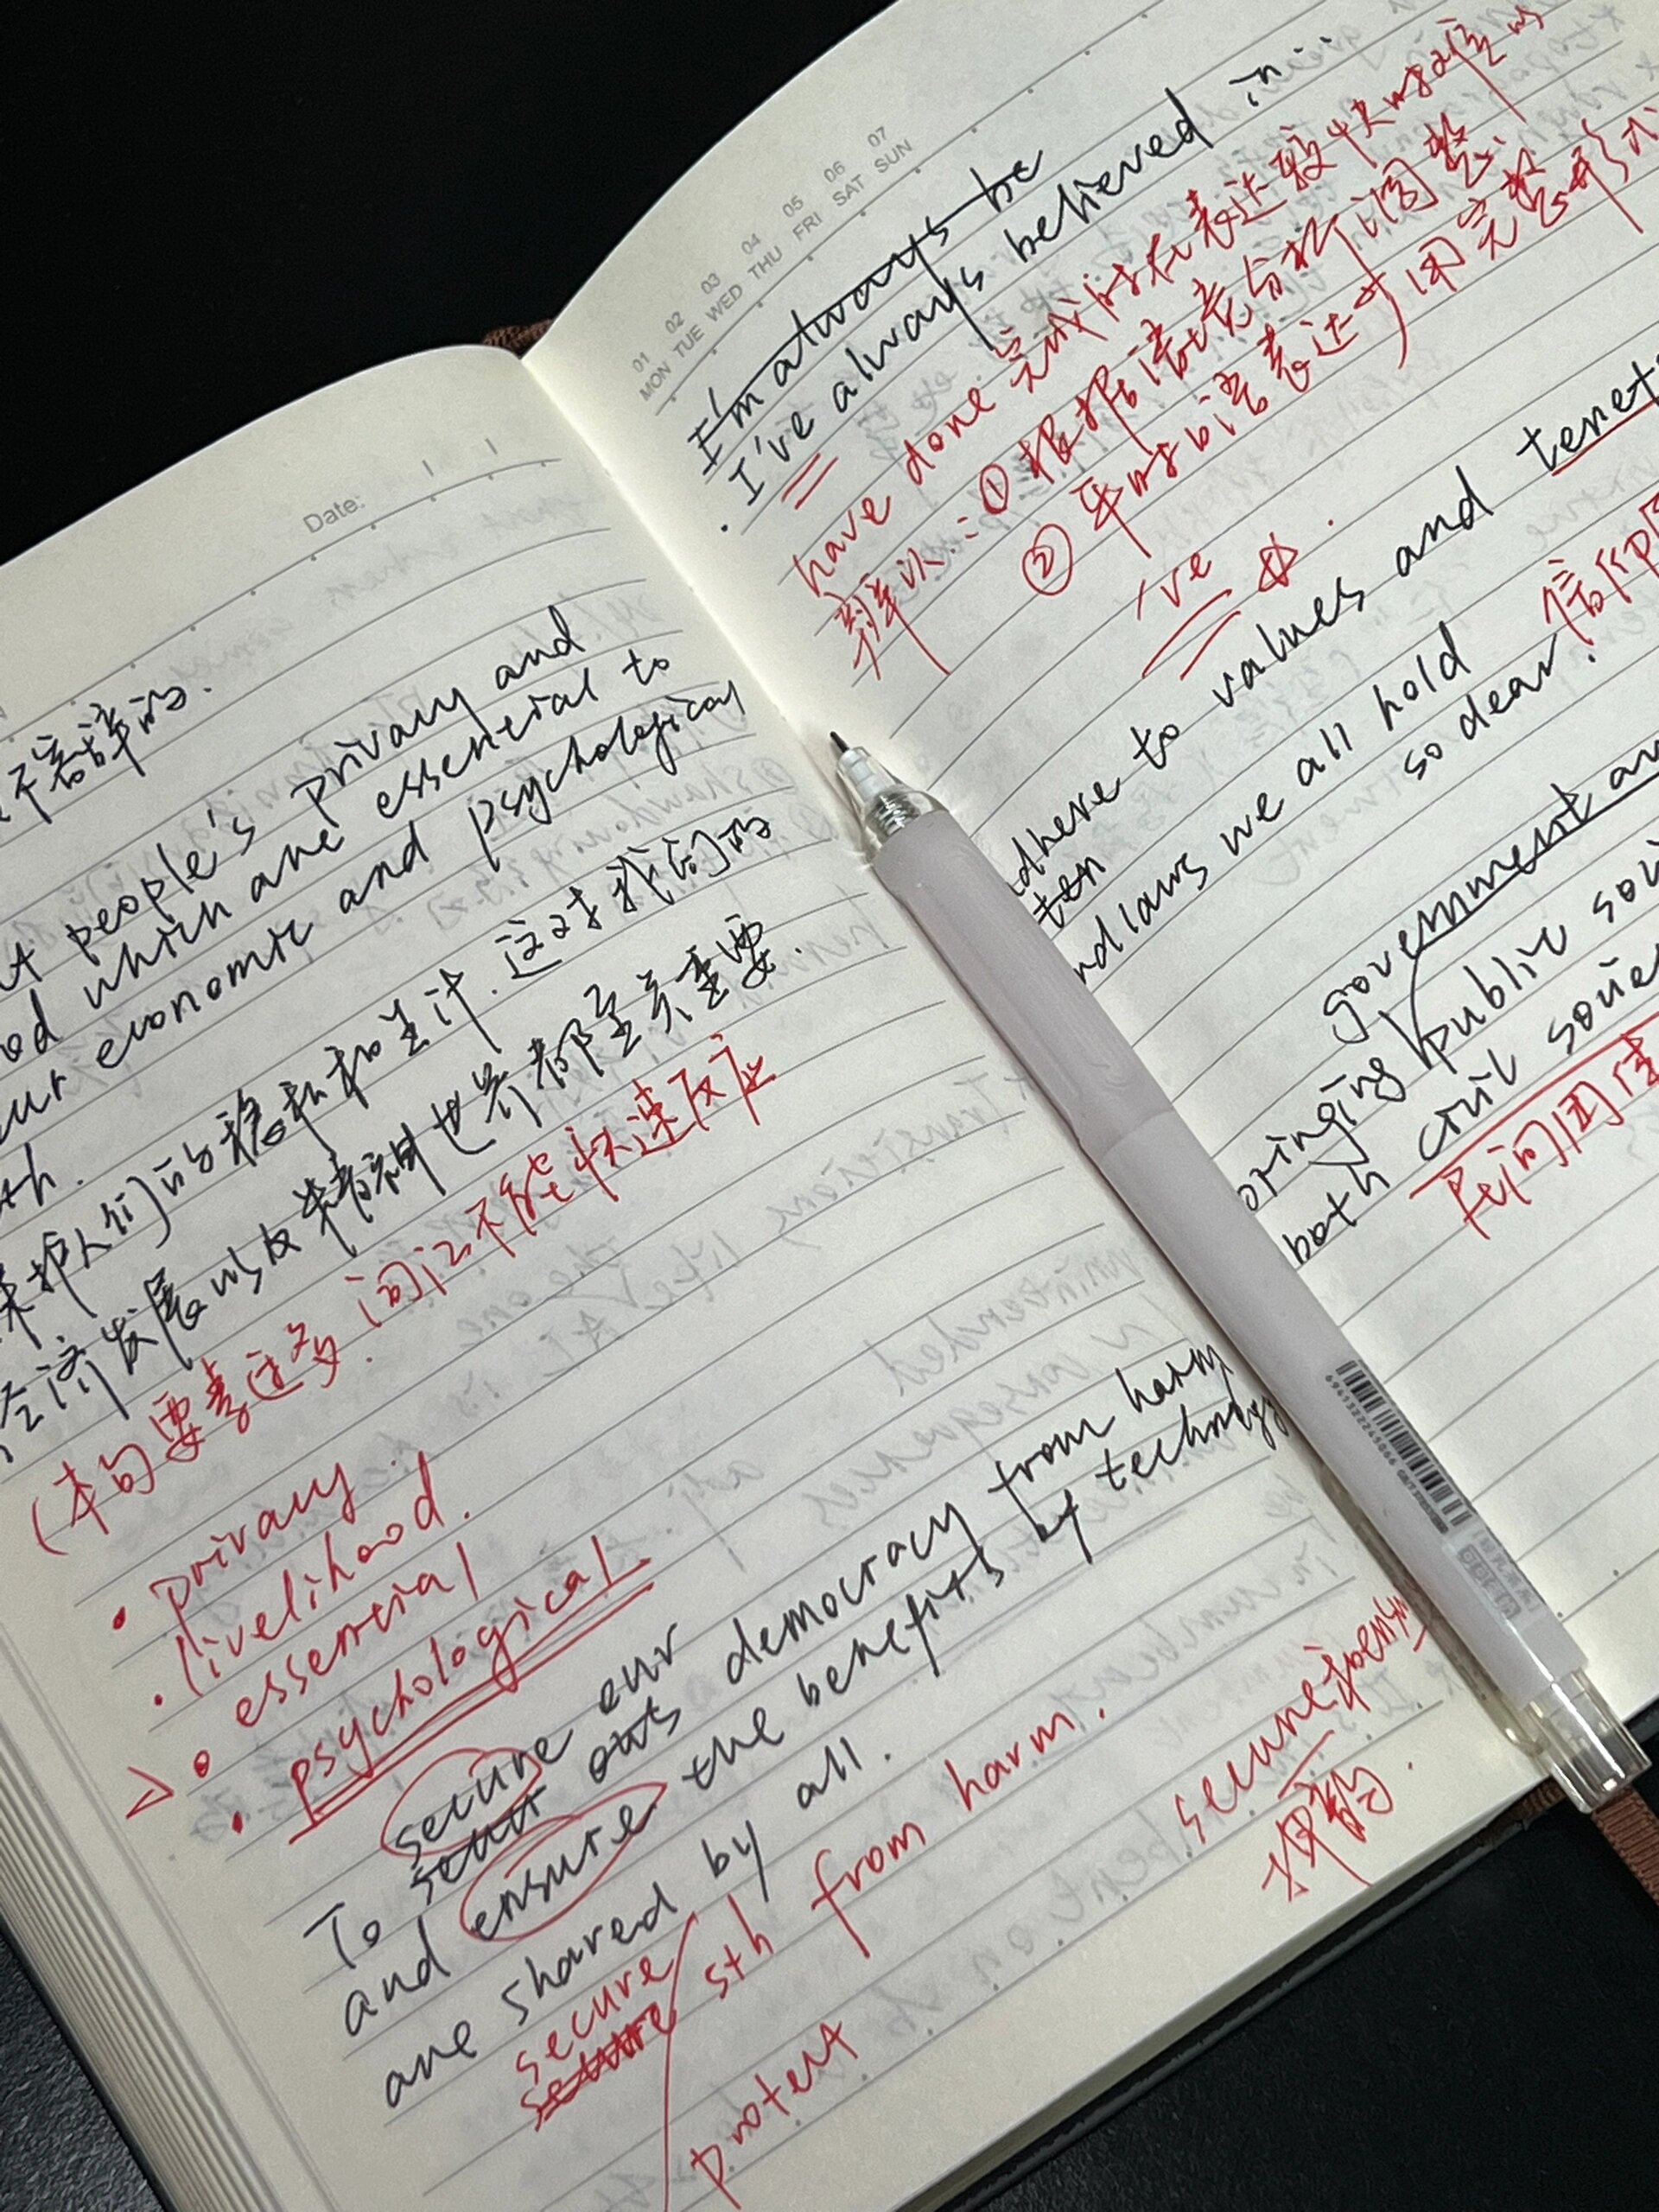 Date:
不容辞的.
people's privacy and
which are essential to
economic and psychological
th.
保护人们的稳私和生计.这对我们的
经济发展以及精神世界都至关重要.
(本句要素过多.词汇不能快速反应
• privacy.
• livelihood.
essential
• psychological
secure our
To democracy from harm
and ensure the benefits by technology
are shared by all.
secure
sth from harm.
protect
secure
01 02 03 04 05 06 07
MON TUE WED THU FRI SAT SUN
I'm always be
• I've always believed in
have done 完成时在表达较快时
辨识: ①根据语法去分析调整
②平时的语言表达少用完整形式
've
dhere to values and tenet
we all hold so dear.
government an
both civil
6961322245066